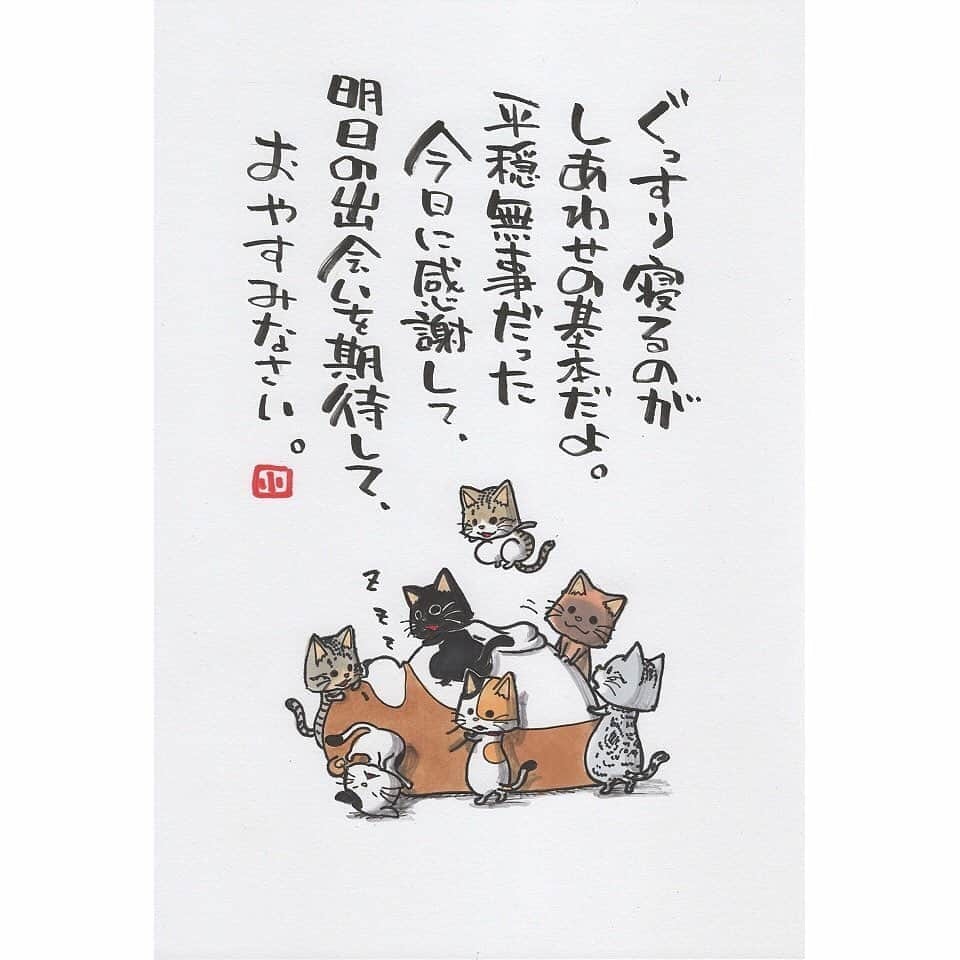 ぐっすり寝るのが
しあわせの基本だよ。
平穏無事だった
今日に感謝して、
明日の出会いを期待して、
おやすみなさい。
小
zzzz